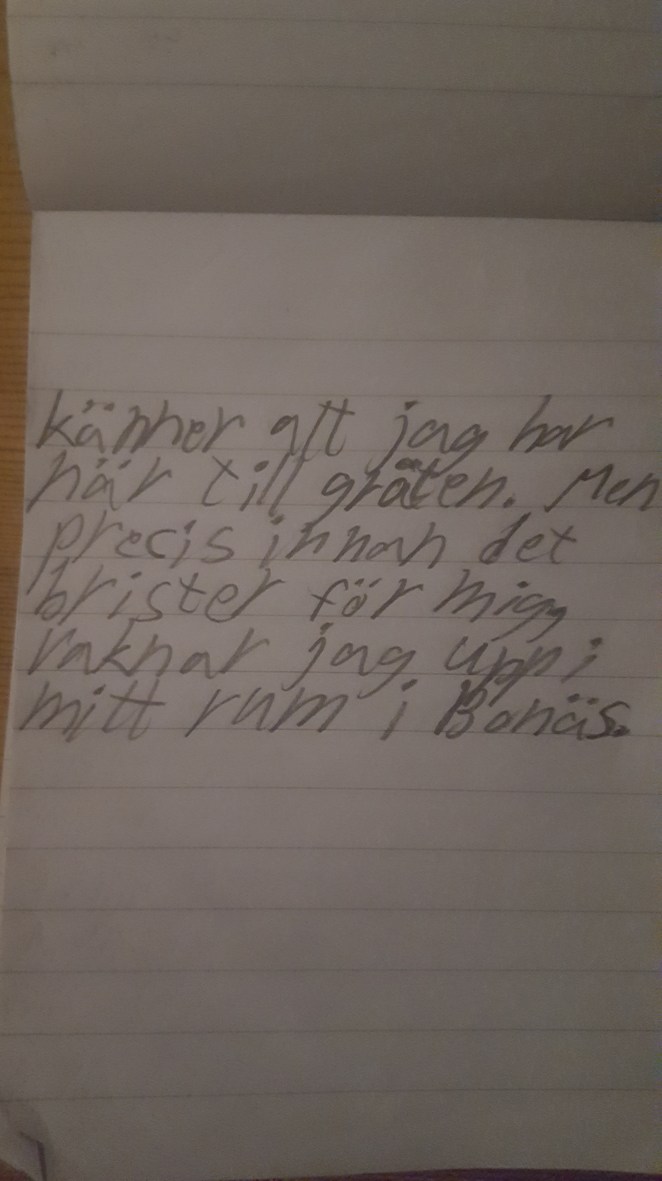 känner att jag har
när till gräten. Men
precis innan det
brister för mig
vaknar jag upp i
mitt rum i Bonäs.